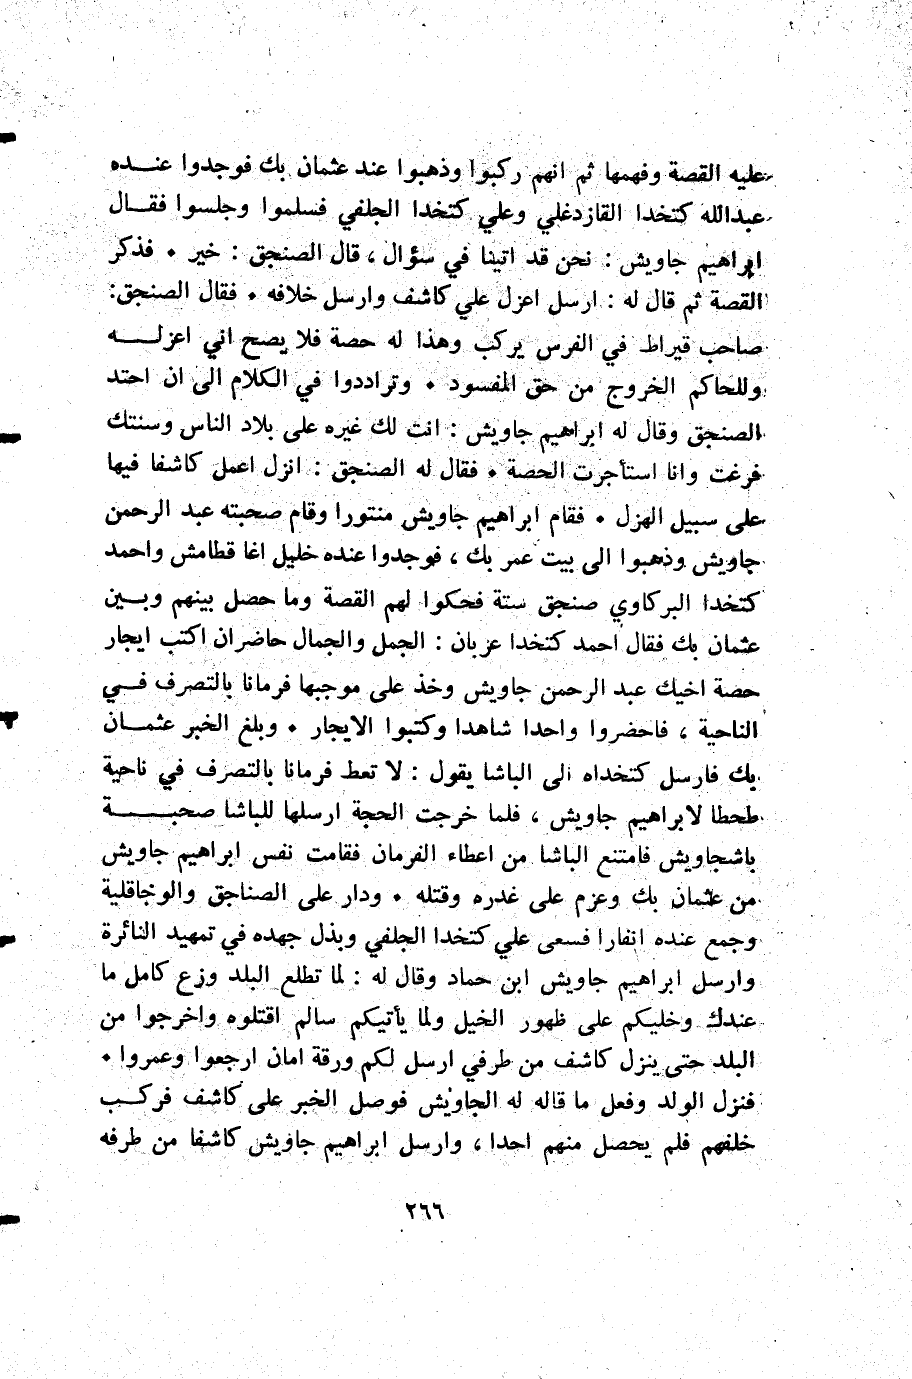 عليه القصة وفهمها ثم انهم ركبوا وذهبوا عند عثمان بك فوجدوا عنـــده
عبدالله كتخدا القازدغلي وعلي كتخدا الجلفي فسلموا وجلسوا فقـــال
ابراهيم جاويش : نحن قد اتينا في سؤال ، قال الصنجق : خير • فذكر
القصة ثم قال له : ارسل اعزل علي كاشف وارسل خلافه • فقال الصنجق:
صاحب قيراط في الفرس يركب وهذا له حصة فلا يصح اني اعزلـــه
وللحاكم الخروج من حق المفسود • وتراددوا في الكلام الى ان احتد
الصنجق وقال له ابراهيم جاويش : انت لك غيره على بلاد الناس وسنتك
فرغت وانا استأجرت الحصة • فقال له الصنجق : انزل اعمل كاشفا فيها
على سبيل الهزل • فقام ابراهيم جاويش منتورا وقام صحبته عبد الرحمن
جاويش وذهبوا الى بيت عمر بك ، فوجدوا عنده خليل اغا قطامش واحمد
كتخدا البركاوي صنجق ستة فحكوا لهم القصة وما حصل بينهم وبـــين
عثمان بك فقال احمد كتخدا عزبان : الجمل والجمال حاضران اكتب ايجار
حصة اخيك عبد الرحمن جاويش وخذ على موجبها فرمانا بالتصرف فـــي
الناحية ، فاحضروا واحدا شاهدا وكتبوا الايجار • وبلغ الخبر عثمـــان
بك فارسل كتخداه الى الباشا يقول : لا تعط فرمانا بالتصرف في ناحية
طحطا لابراهيم جاويش ، فلما خرجت الحجة ارسلها للباشا صحبـــــة
باشجاويش فامتنع الباشا من اعطاء الفرمان فقامت نفس ابراهيم جاويش
من عثمان بك وعزم على غدره وقتله • ودار على الصناجق والوجاقلية
وجمع عنده انفارا فسعى علي كتخدا الجلفي وبذل جهده في تمهيد النائرة
وارسل ابراهيم جاويش ابن حماد وقال له : لما تطلع البلد وزع كامل ما
عندك وخليكم على ظهور الخيل ولما يأتيكم سالم اقتلوه واخرجوا من
البلد حتى ينزل كاشف من طرفي ارسل لكم ورقة امان ارجعوا وعمروا •
فنزل الولد وفعل ما قاله له الجاويش فوصل الخبر على كاشف فركـــب
خلفهم فلم يحصل منهم احدا ، وارسل ابراهيم جاويش كاشفا من طرفه
٢٦٦